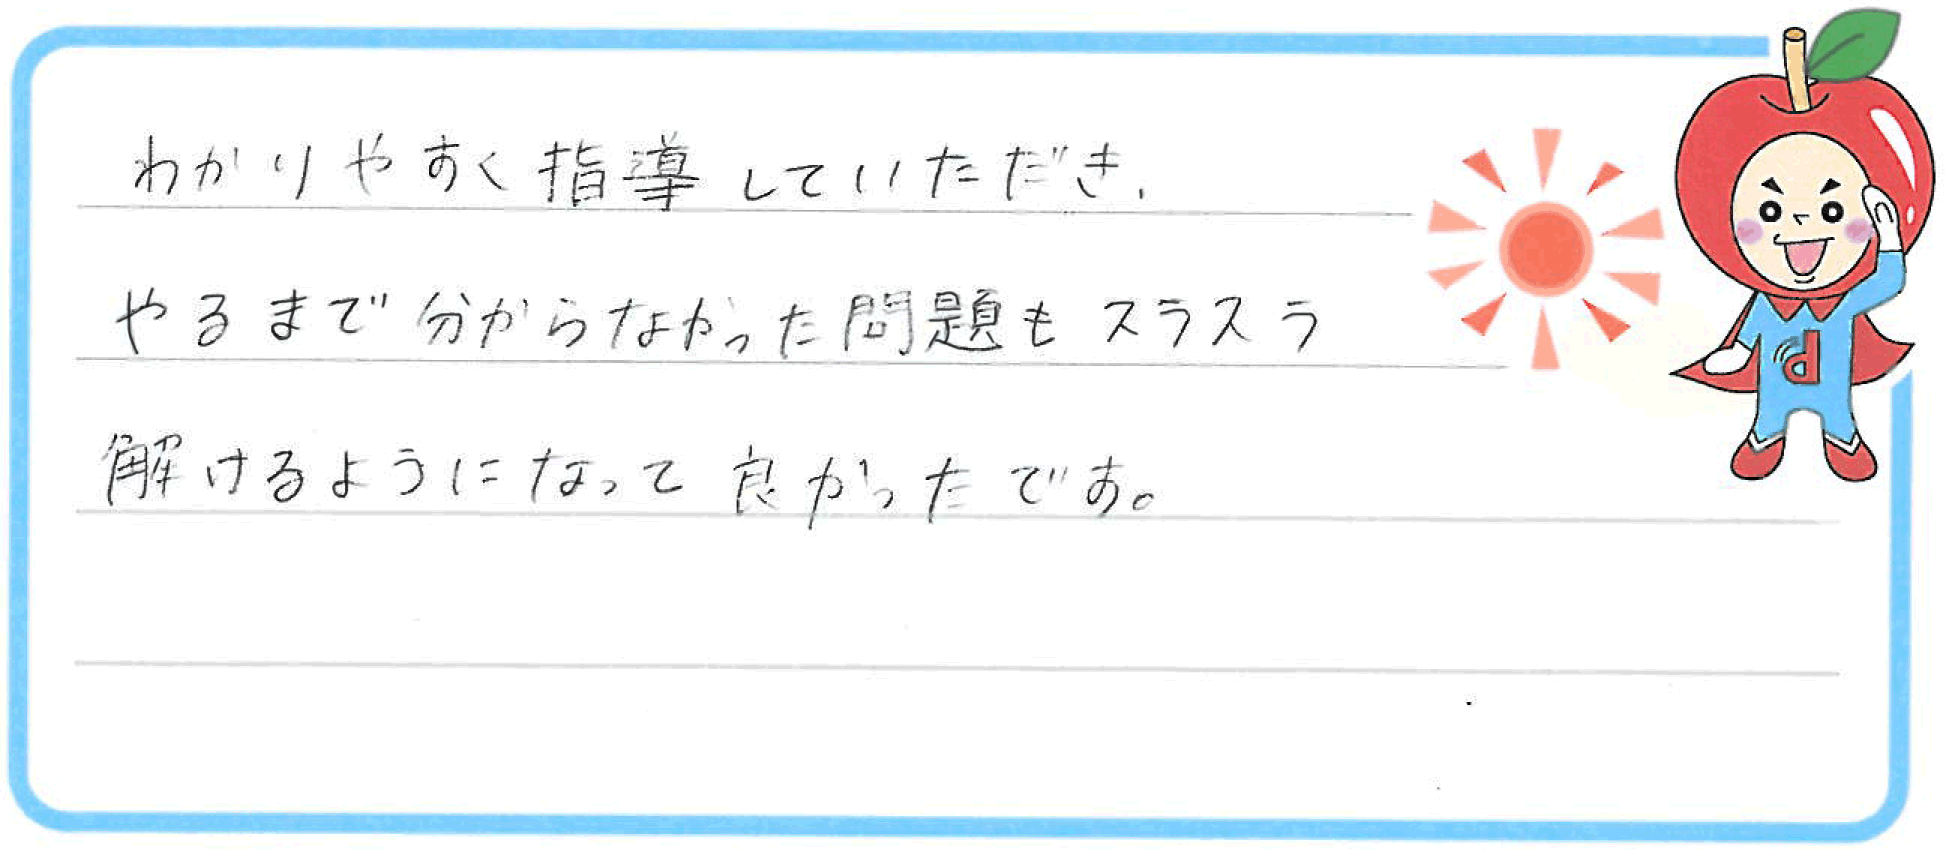 わかりやすく指導していただき、
やるまで分からなかった問題もスラスラ
解けるようになって良かったです。
d